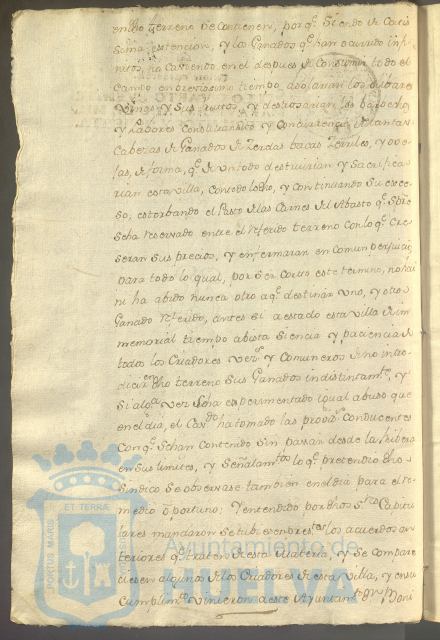 en dho terreno se contienen, porq.e siendo de cortis
sima extencion, y los Ganados q.e han ocurrido infi
nitos, no caviendo en el despues de consumir todo el
campo en brevissimo tiempo, asolarian los olibares
Vinas y sus frutos, y destrosarian los barvecho
y lavores con su transito y concurrencia de tantas
Cabezas de Ganados de Zerdas bacas Zerriles, y ove
jas, de forma, q.e de un todo destruirian y sacrifica
rian esta villa, con todo lo dho, y continuando su exce
so, estorbando el Pasto de las Carnes del Abasto q.e sbre
se ha reservado entre el referido terreno con lo q.e cre
seran sus precios, y enfermaran en comun perjuicio
para todo lo qual, por ser corto este termino, no hai
ni ha abido nunca otro aq.e destinar uno, y otro
Ganado referido, antes si a estado esta villa de in
memorial tiempo a vista siencia y paciencia de
todos los Criadores vez.s y Comuneros de no intro
ducir en dho terreno sus Ganados indistintam.te, y
si alg.a vez se ha esperimentado igual abuso que
en el dia, el Cav.do ha tomado las prov.as conducentes
con q.e se han contenido sin pasar desde la ribera
en sus limites, y señalam.tos lo q.e pretendio dho
Sindico se observase tambien en el dia para el re
medio oportuno; y entendido por dhos s.res Capitu
lares mandaron se tubiesen presentes los acuerdos an
teriores q.e traen de esta materia, y se compare
ciesen algunos de los Criadores de esta villa, y en su
cumplim.to vinieron a este Ayuntam.to Dn Boni
PORTUS MARIS ET TERRAE
Ayuntamiento de
HUELVA